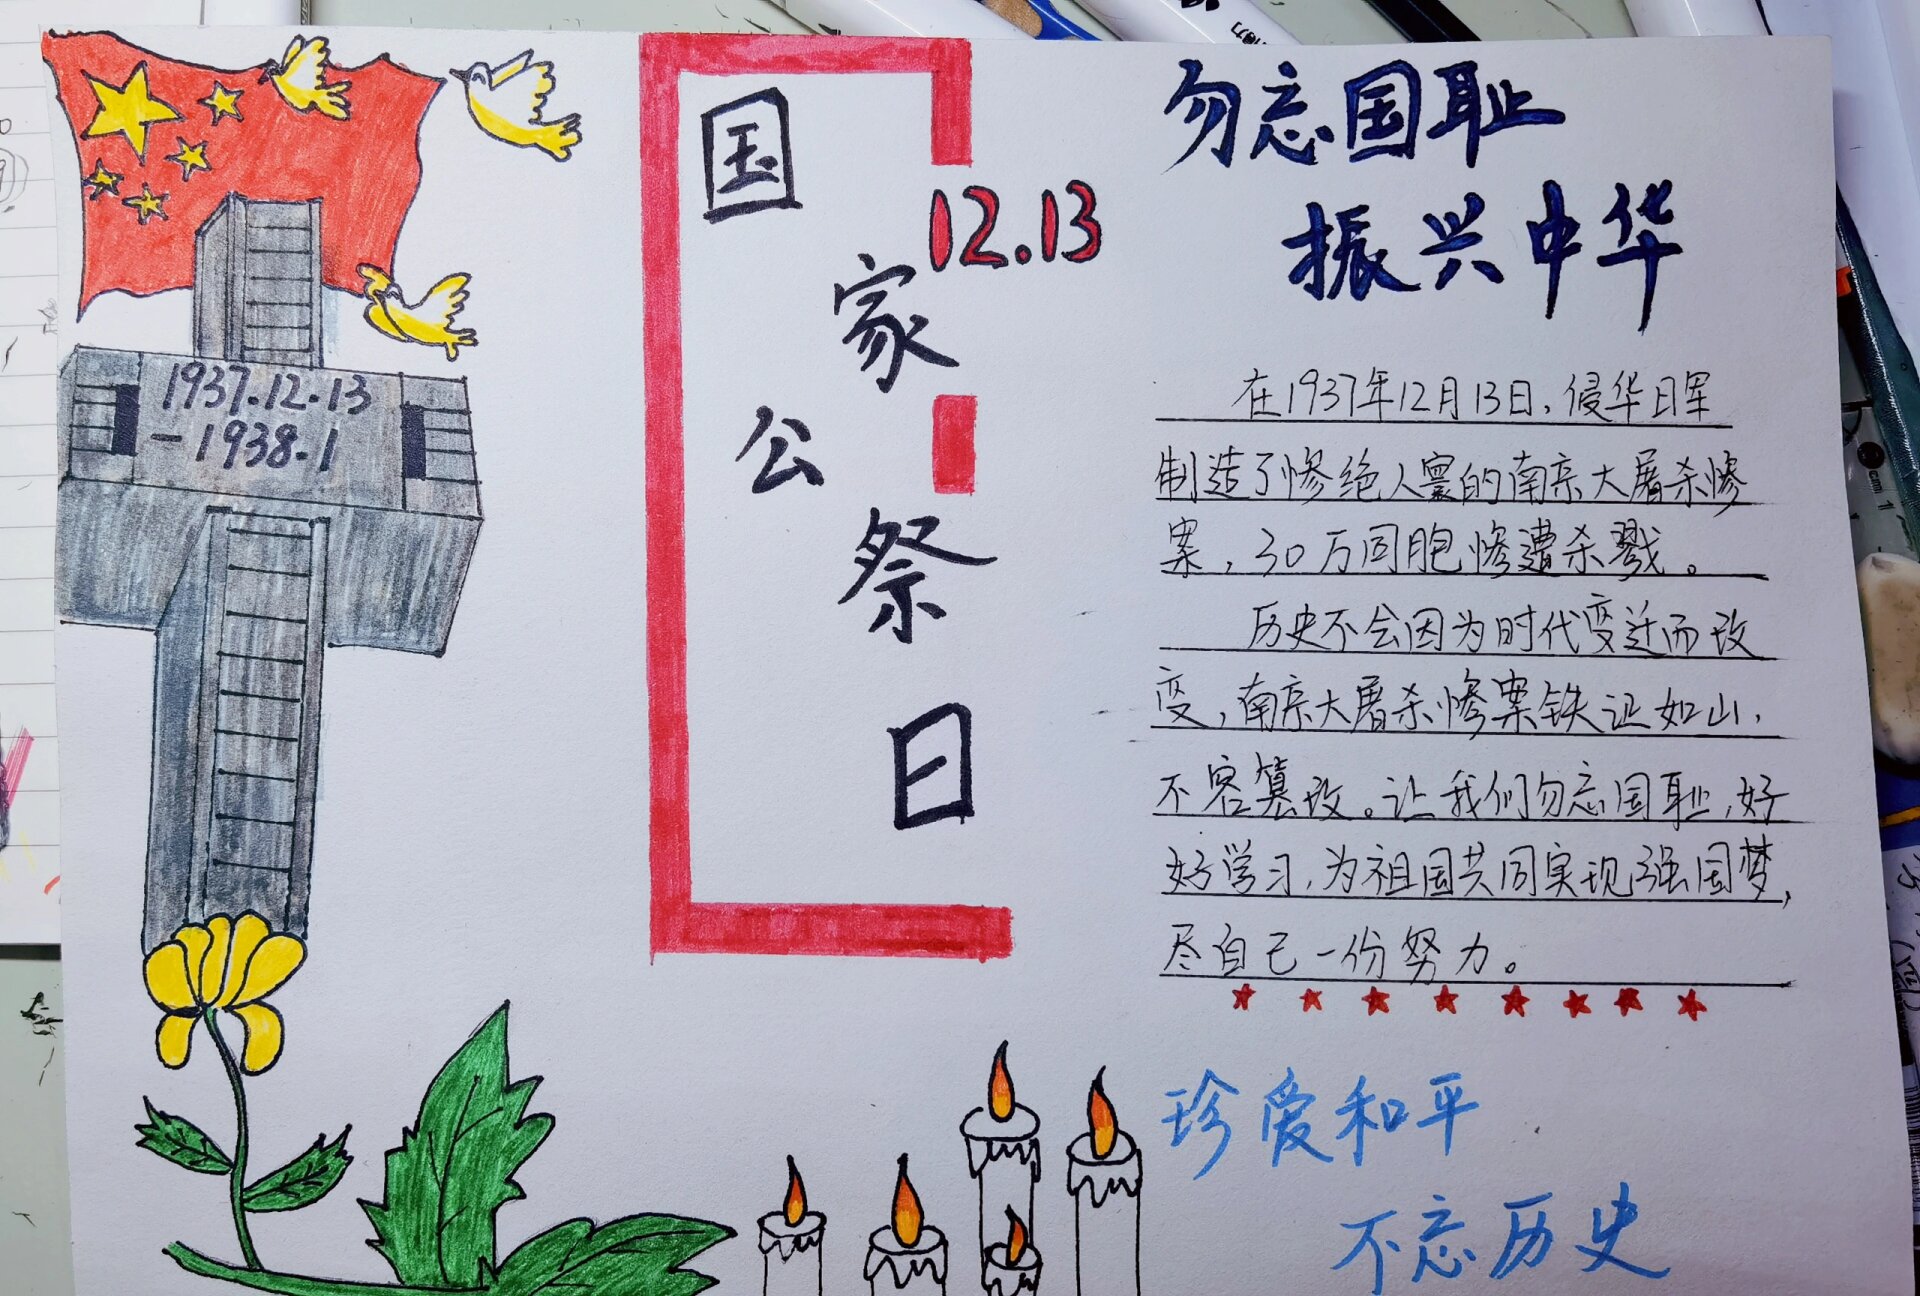 1937.12.13
-1938.1
国
家
公
祭
日
12.13
勿忘国耻
振兴中华
在1937年12月13日，侵华日军
制造了惨绝人寰的南京大屠杀惨
案，30万同胞惨遭杀戮。
历史不会因为时代变迁而改
变，南京大屠杀惨案铁证如山，
不容篡改。让我们勿忘国耻，好
好学习，为祖国共同实现强国梦，
尽自己一份努力。
珍爱和平
不忘历史